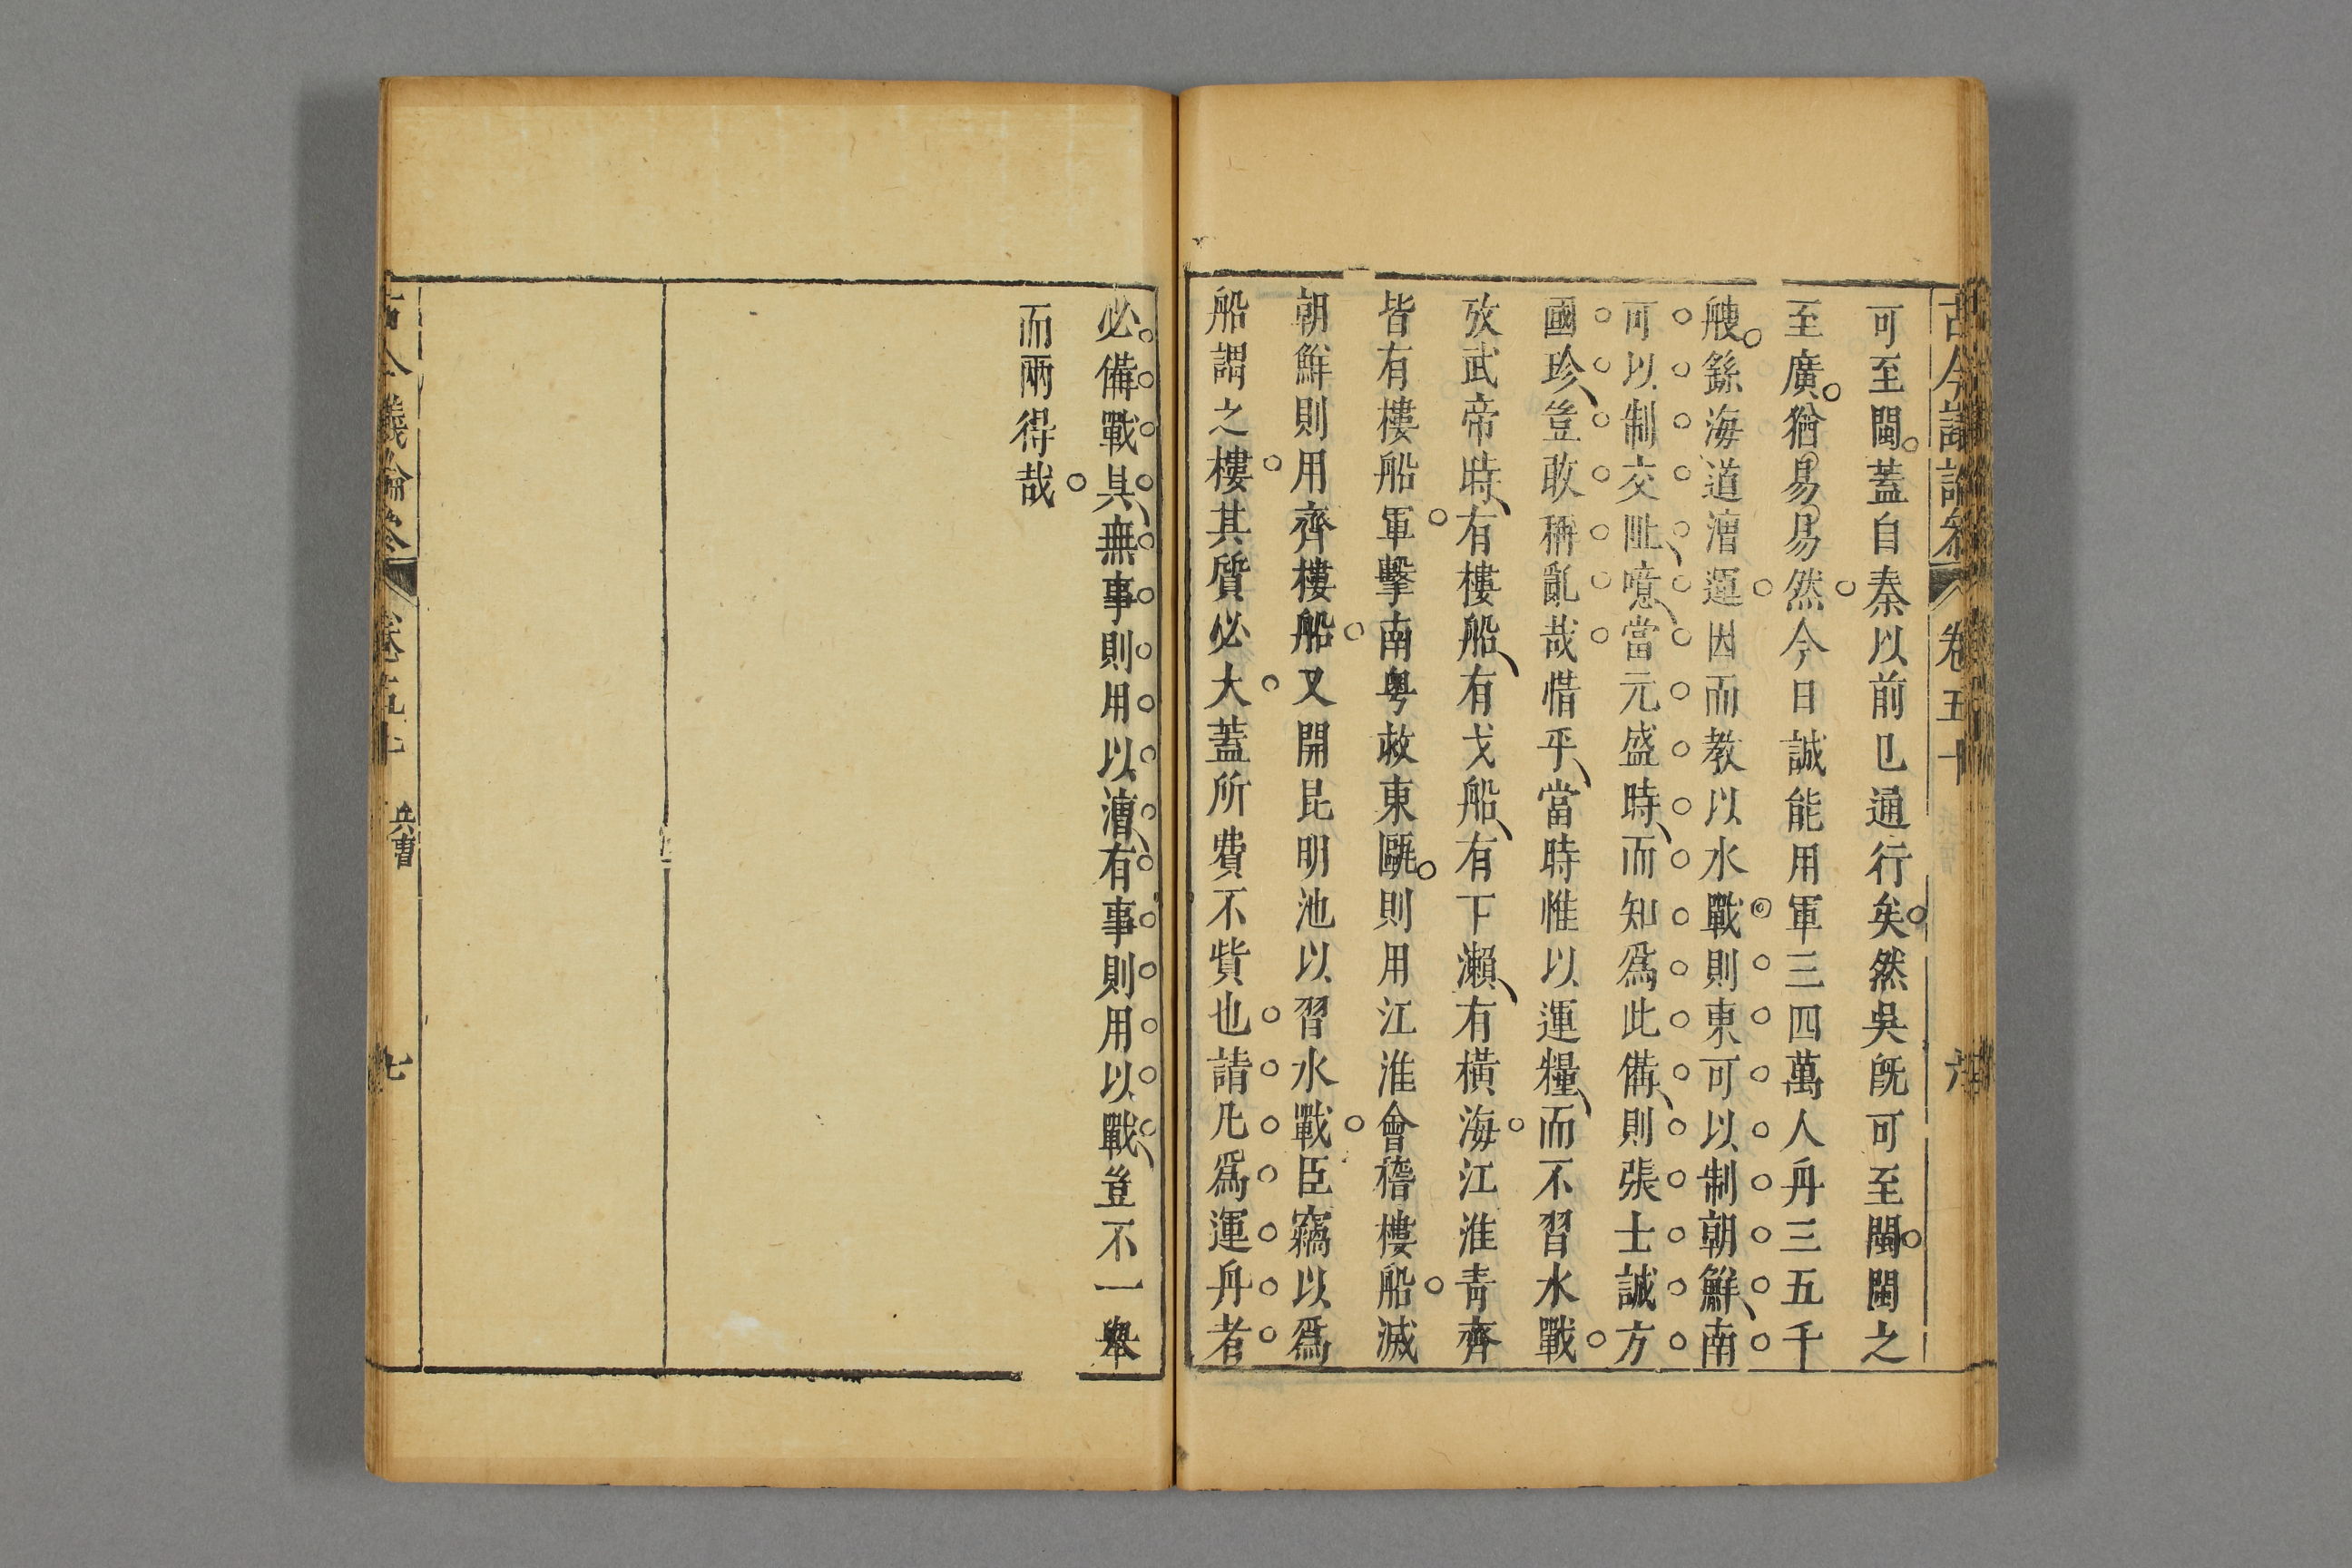 古今議論參 卷五十 六
可至閩蓋自秦以前已通行矣然吳旣可至閩閩之
至廣猶易易然今日誠能用軍三四萬人舟三五千
艘繇海道漕運因而教以水戰則東可以制朝鮮南
可以制交阯噫當元盛時而知爲此備則張士誠方
國珍豈敢稱亂哉惜乎當時惟以運糧而不習水戰
攷武帝時有樓船有戈船有下瀨有橫海江淮青齊
皆有樓船軍擊南粤救東甌則用江淮會稽樓船滅
朝鮮則用齊樓船又開昆明池以習水戰臣竊以爲
船謂之樓其質必大蓋所費不貲也請凡爲運舟者
必備戰具無事則用以漕有事則用以戰豈不一舉
而兩得哉
古今議論參 卷五十 兵曹 七